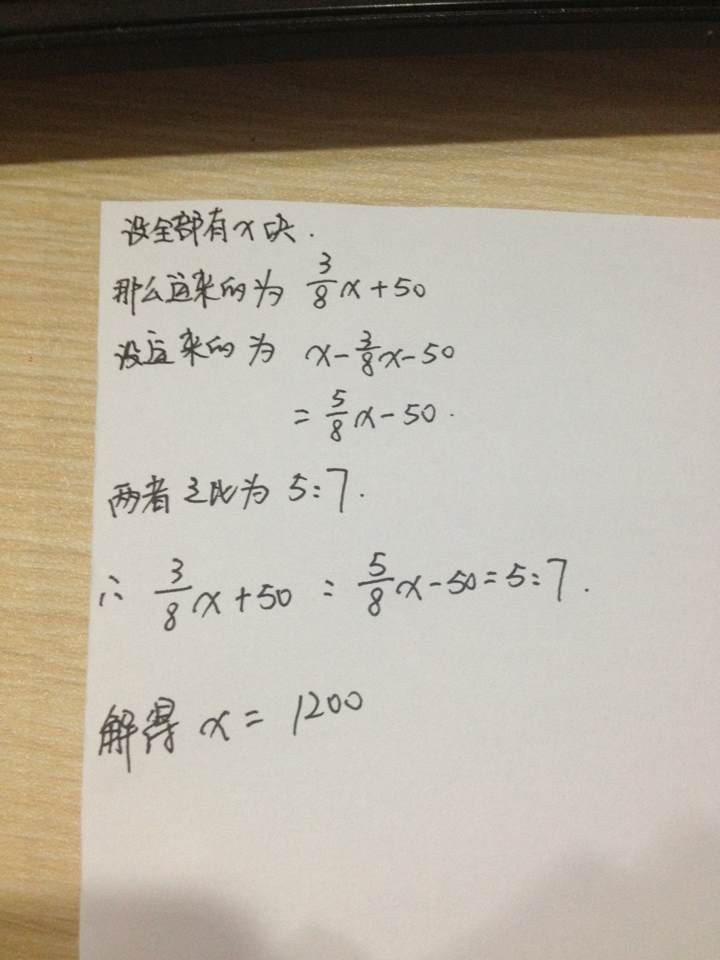 设全部有x块.
那么运来的为 3/8x+50
没运来的为 x-3/8x-50
=5/8x-50.
两者之比为 5:7.
∴ 3/8x+50 : 5/8x-50=5:7.
解得 x=1200